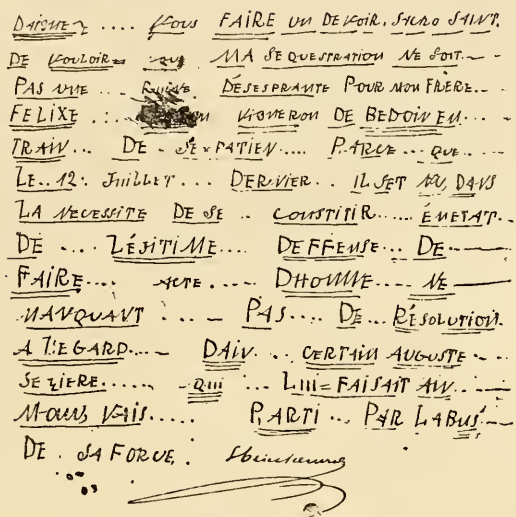 DAIGNEZ .... VOUS FAIRE UN DEVOIR. SACRO SAINT.
DE VOULOIR= QUE MA SEQUESTRATION NE SOIT.--
PAS UNE .. RUINE. DÉSESPRANTE POUR MON FRÈRE..-
FELIXE .:. VIGNERON DE BEDOIN EN...-
TRAIN... DE - SE=PATIEN.... PARCE... QUE...-
LE..12: JUILLET... DERNIER.. IL SET DANS
LA NECESSITE DE SE .. CONSTITIR..... ÉNETAT..
DE .... LÉJITIME.... DEFFENSE... DE.-
FAIRE.... ACTE .... DHOMME.... NE —
MANQUANT ...- PAS.... DE... RÉSOLUTION.
A L'EGARD...- DAIN... CERTAIN AUGUSTE - - .
SEZIERE...... QUI ... LUI= FAISAIT AIN...-
MAUVAIS..... PARTI ... PAR LABUS.-
DE . SA FORCE.